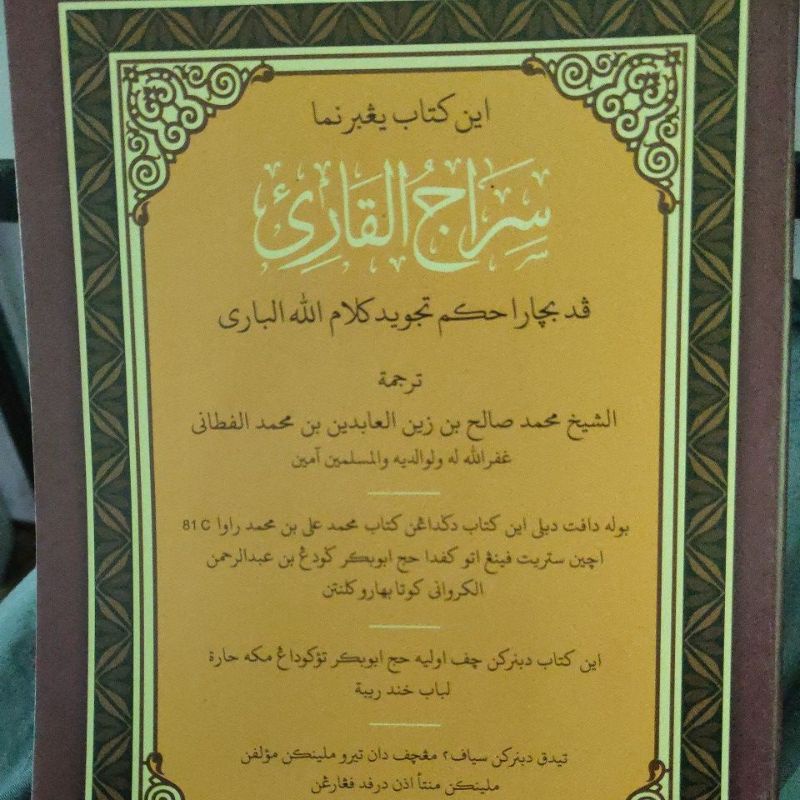 اين کتاب يڠبرنما
سِرَاجُ الْقَارِئِ
ڤد بچارا حکم تجويد کلام الله الباری
ترجمة
الشيخ محمد صالح بن زين العابدين بن محمد الفطانی
غفرالله له ولوالديه والمسلمين آمين
بوله دافت دبلی اين کتاب دکداڠن کتاب محمد علی بن محمد راوا 81 C
اچين ستريت فينڠ اتو کفدا حج ابوبکر کودڠ بن عبدالرحمن
الکروانی کوتا بهارو کلنتن
اين کتاب دبنرکن چف اوليه حج ابوبکر تؤکوداڠ مکه حارة
لباب خند ريبة
تيدق دبنرکن سياف٢ مڠچف دان تيرو ملينکن مؤلفن
ملينکن منتأ اذن درفد فڠارڠن